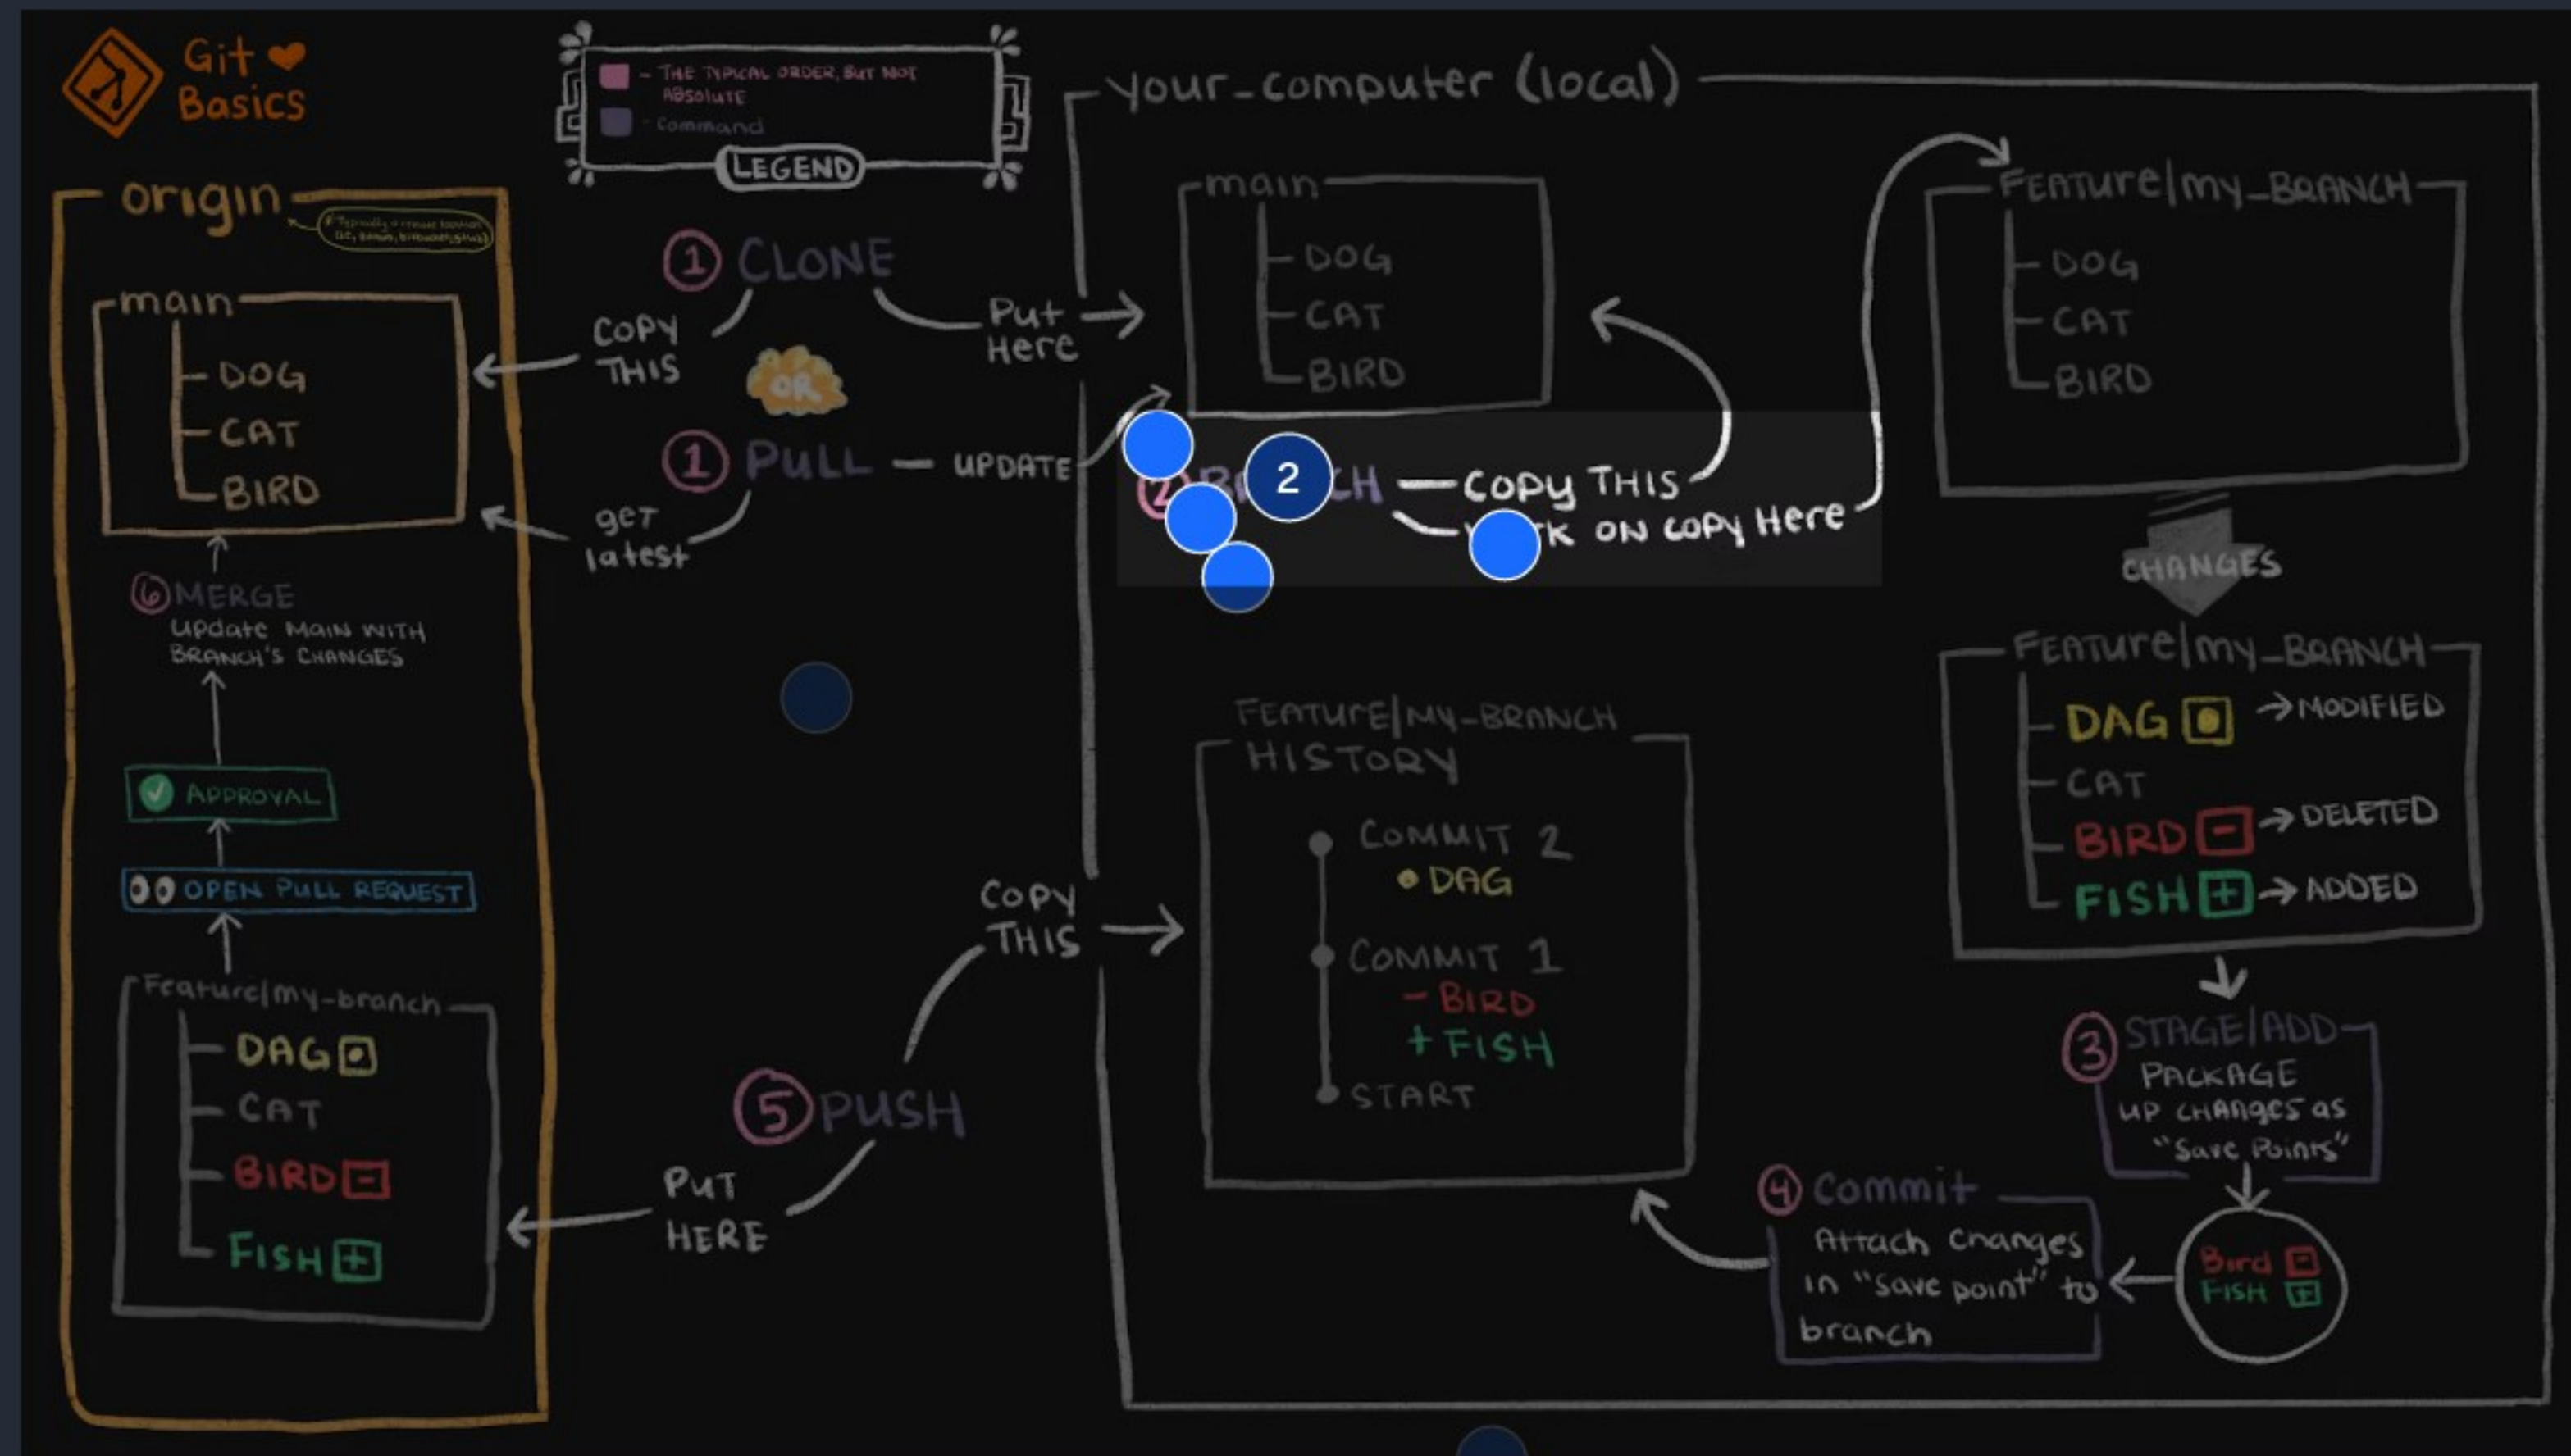 Git
Basics
- THE TYPICAL ORDER, BUT NOT
ABSOLUTE
- Command
LEGEND
origin
main
DOG
CAT
BIRD
6 MERGE
update MAIN WITH
BRANCH'S CHANGES
APPROVAL
OPEN PULL REQUEST
Feature/my-branch
DAG
CAT
BIRD -
FISH +
1 CLONE
COPY
THIS
Put
Here
OR
1 PULL
UPDATE
get
latest
COPY
THIS
5 PUSH
PUT
HERE
your_computer (local)
main
DOG
CAT
BIRD
2
COPY THIS
ON COPY Here
FEATURE/my_BRANCH
DOG
CAT
BIRD
CHANGES
FEATURE/my_BRANCH
DAG → MODIFIED
CAT
BIRD - → DELETED
FISH + → ADDED
3 STAGE/ADD
PACKAGE
UP CHANGES as
"Save Points"
Bird -
FISH +
4 Commit
Attach Changes
in "save point" to
branch
FEATURE/MY-BRANCH
HISTORY
COMMIT 2
• DAG
COMMIT 1
- BIRD
+ FISH
START